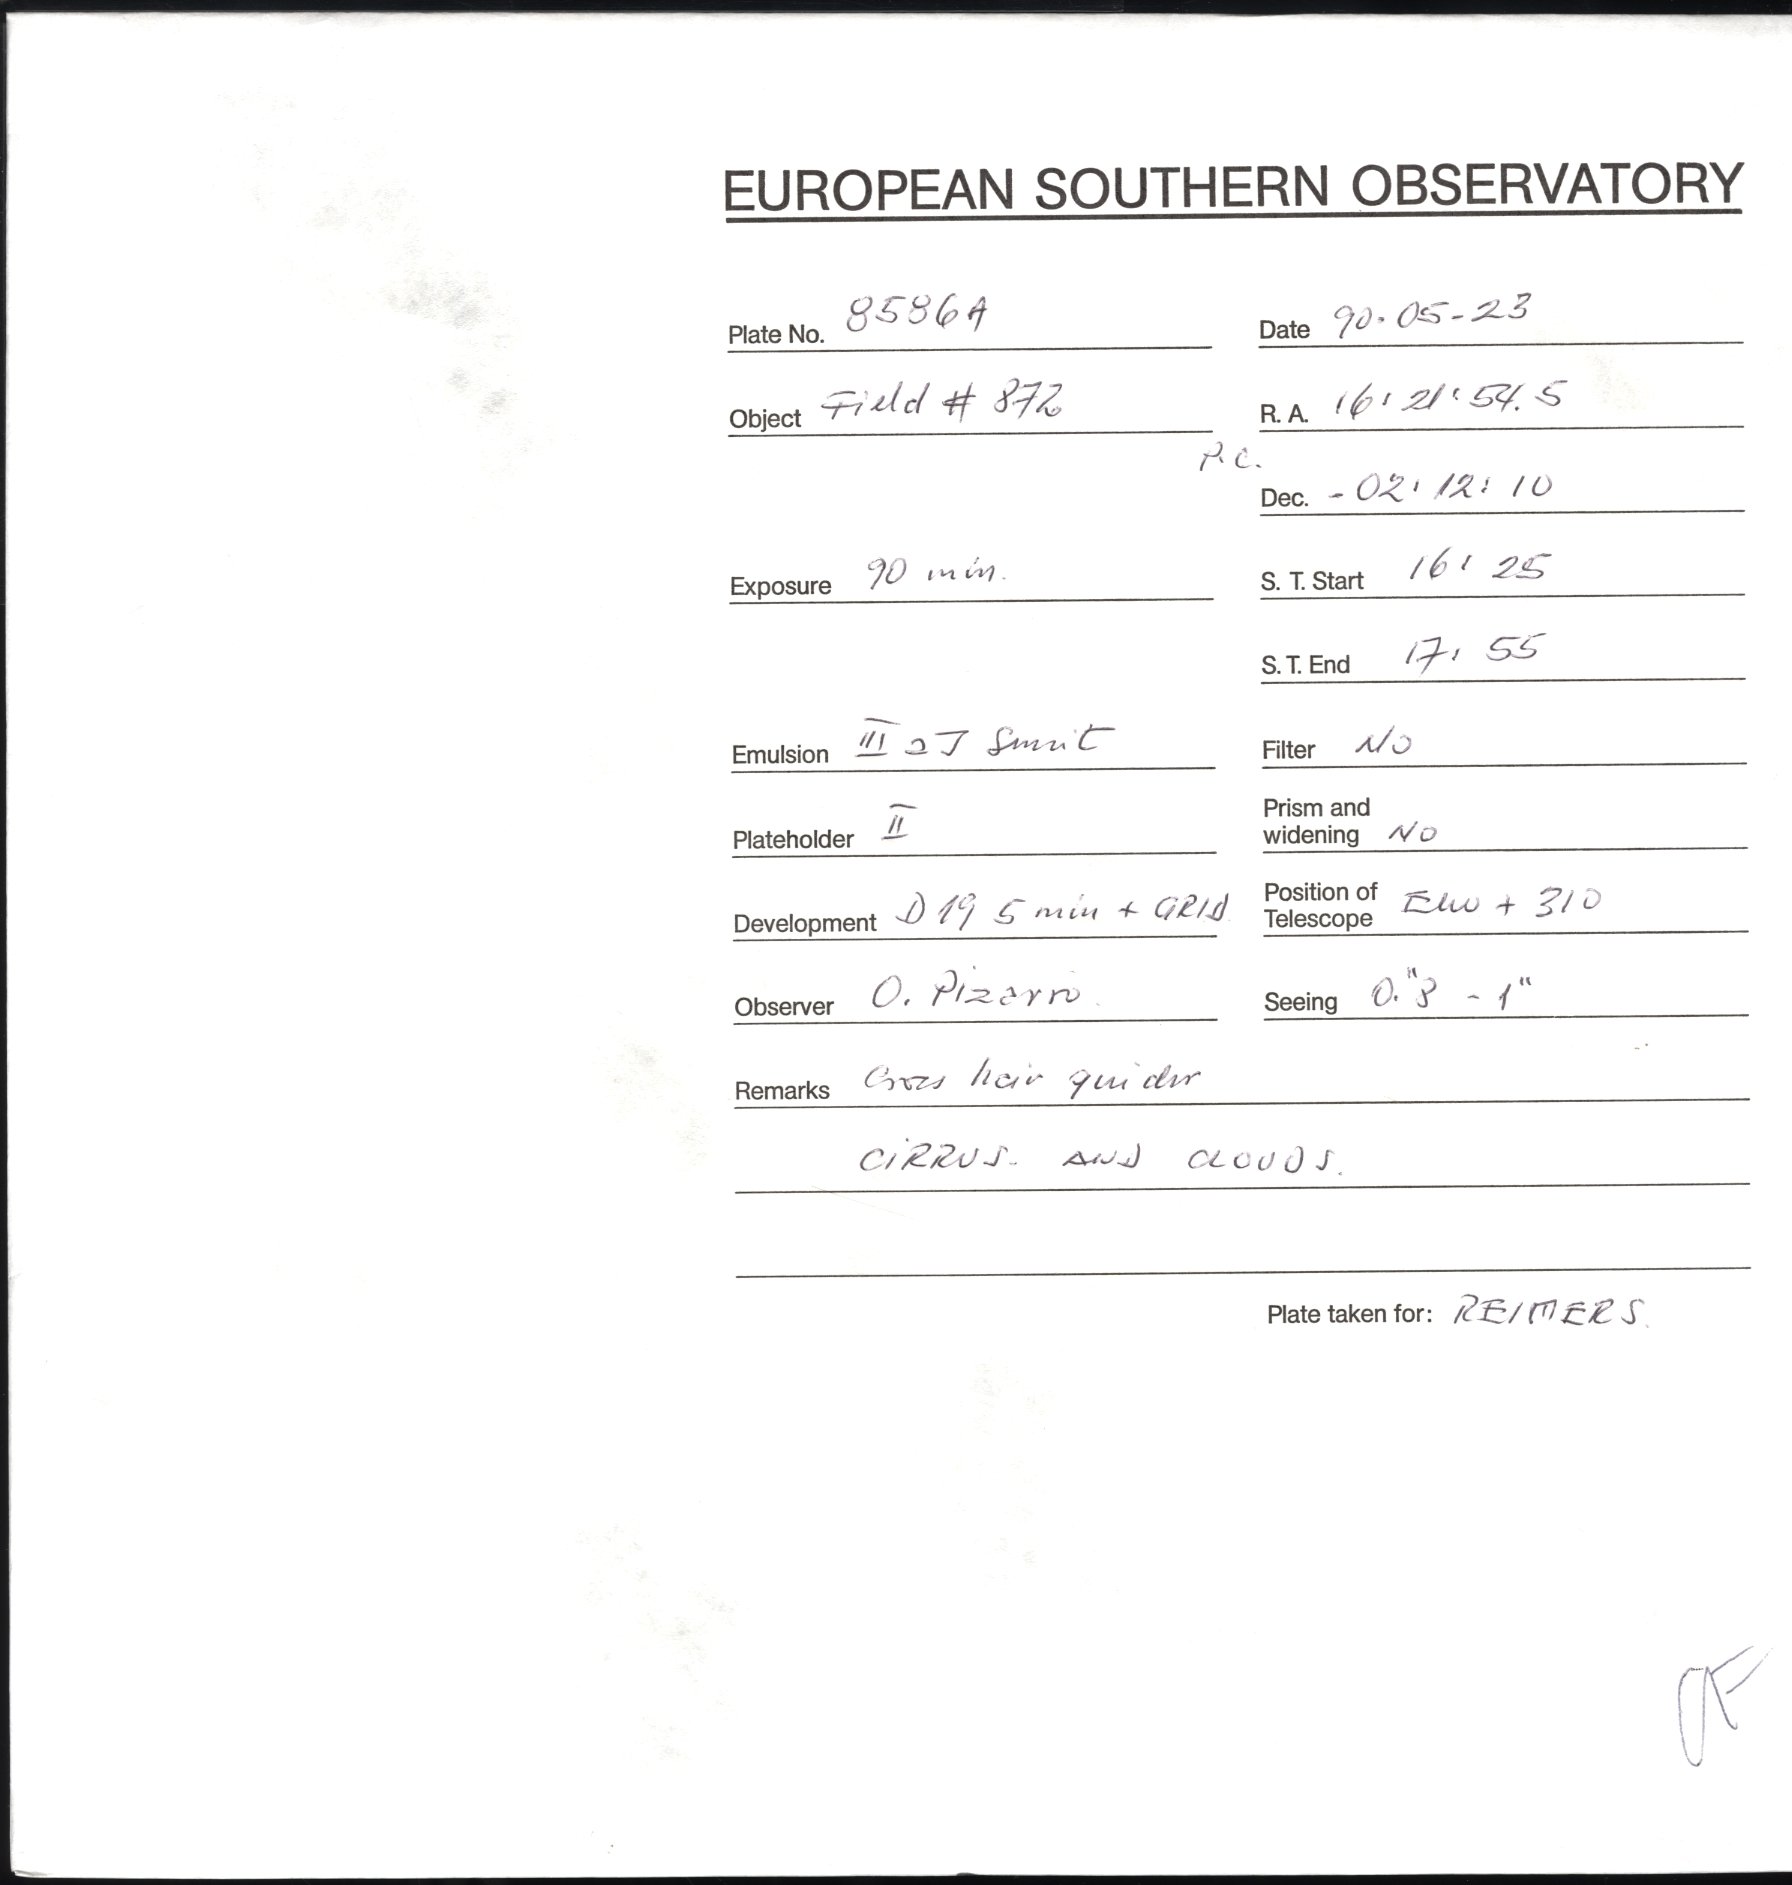 EUROPEAN SOUTHERN OBSERVATORY
Plate No. 8586A Date 90-05-23
Object Field # 872 R. A. 16:21:54.5
P.C.
Dec. -02:12:10
Exposure 90 min. S. T. Start 16:25
S. T. End 17:55
Emulsion III aJ Filter NO
Plateholder II Prism and
widening NO
Development D 19 5 min + GRID Position of
Telescope + 310
Observer O. Pizarro. Seeing 0."8 - 1"
Remarks Cross hair guider
CIRRUS. AND CLOUDS.
Plate taken for: REIMERS.